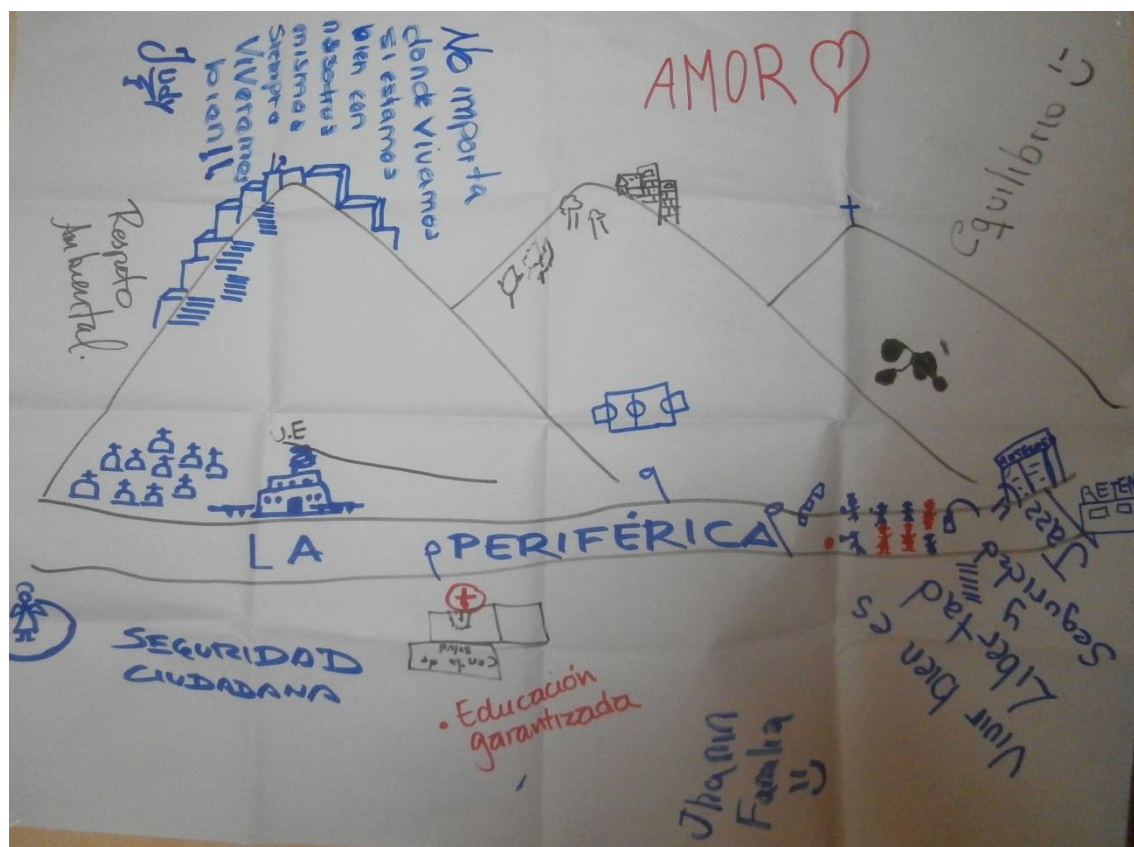 No importa
donde vivamos
si estamos
bien con
nosotros
mismos
siempre
Viviremos
bien!!
Judy
AMOR
Equilibrio
Respeto
Ambiental.
U.E
LA PERIFÉRICA
SEGURIDAD
CIUDADANA
Centro de
salud
• Educación
garantizada
Jhanin
Familia
Vivir bien es
Libertad
y
Seguridad
Jazz